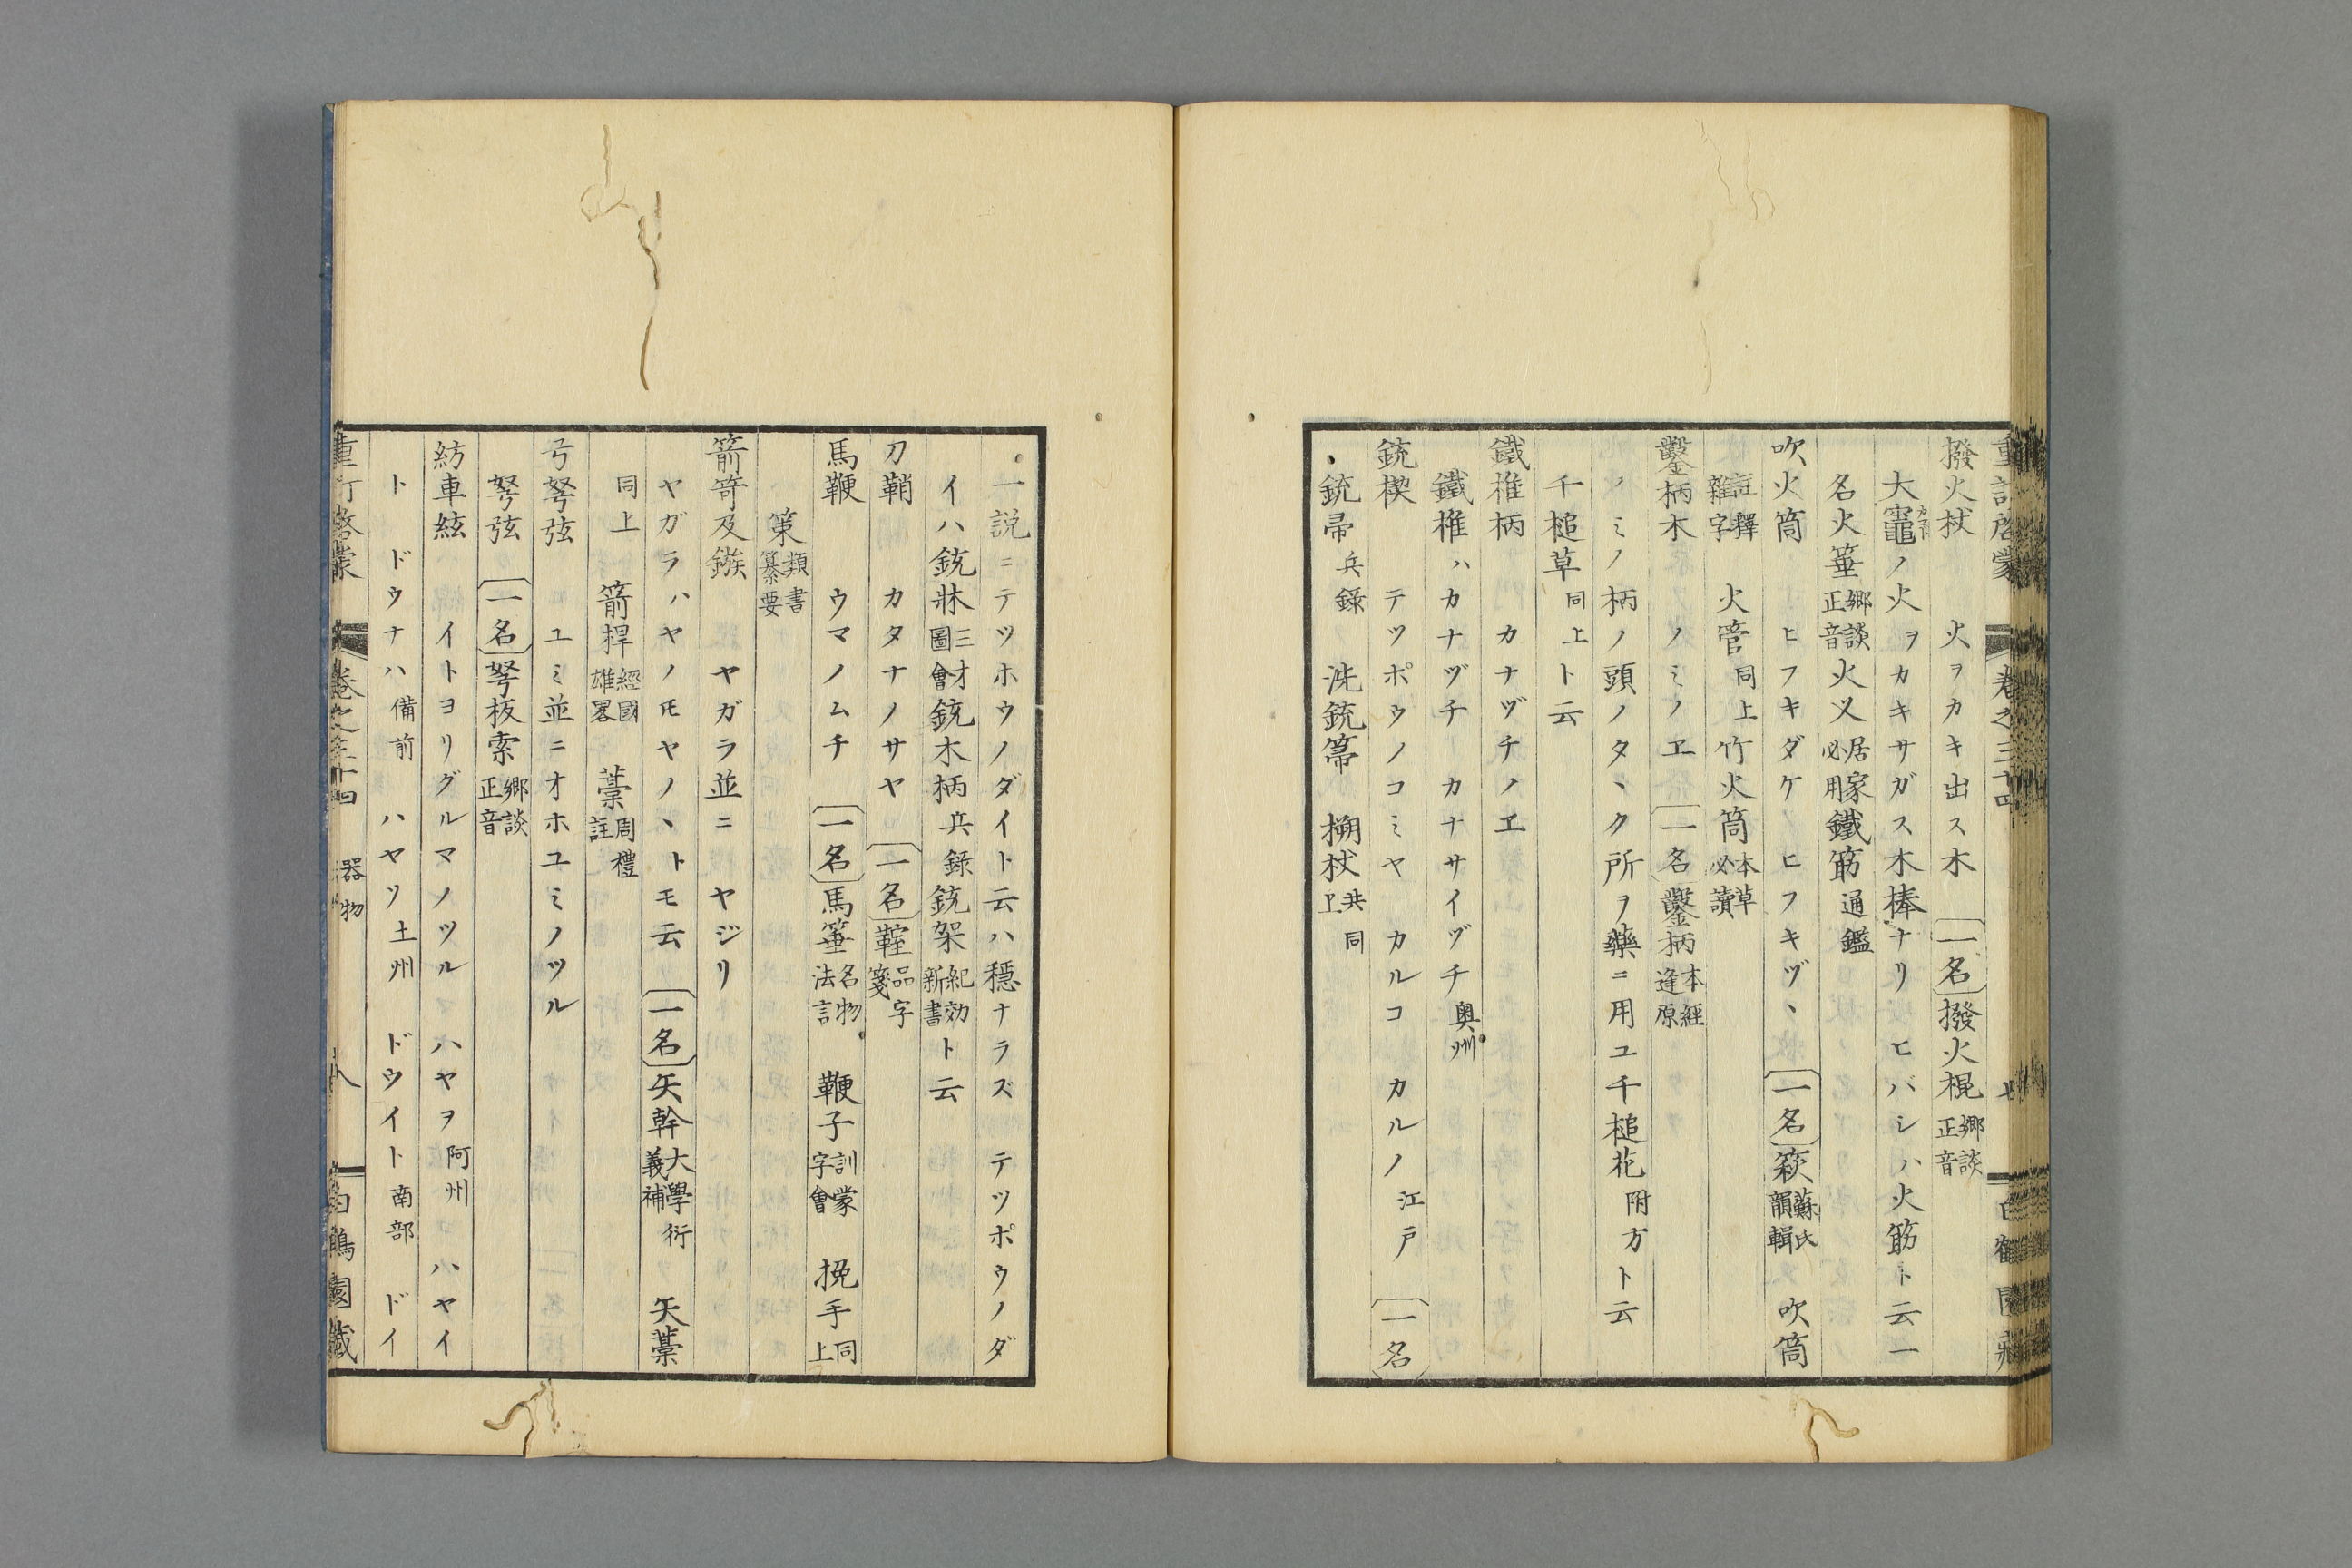 撥火杖　火ヲカキ出ス木　一名　撥火棍 郷談正音
大竈ノ火ヲカキサガス木棒ナリ　ヒバシハ火筯ト云一
名火箠 郷談正音 火叉 居家必用 鐵筯 通鑑
吹火筒　ヒフキダケ　ヒフキヅヽ　一名 䈉 蘇氏韻輯　吹筒
註釋雜字　火管 同上 竹火筒 本草必讀
鑿柄木　ノミノヱ　一名 鑿柄 本經逢原
ノミノ柄ノ頭ノタヽク所ヲ藥ニ用ユ千槌花 附方ト云
千槌草 同上ト云
鐵椎柄　カナヅチノヱ
鐵椎ハカナヅチ　カナサイヅチ 奥州
銃楔　テツポウノコミヤ　カルコ　カルノ 江戸　一名
銃帚 兵錄　洗銃箒　搠杖 共同上
一説ニテツホウノダイト云ハ穏ナラズ　テツポウノダ
イハ銃牀 三才圖會 銃木柄 兵錄 銃架 紀効新書ト云
刀鞘　カタナノサヤ　一名 鞛 品字箋
馬鞭　ウマノムチ　一名 馬箠 名物法言　鞭子 訓蒙字會　挽手 同上
策 類書纂要
箭笴及鏃　ヤガラ並ニ　ヤジリ
ヤガラハヤノモヤノヽトモ云　一名 矢幹 大學衍義補　矢藁
同上　箭桿 經國雄畧　藁 周禮註
弓弩弦　ユミ並ニオホユミノツル
弩弦　一名 弩板索 郷談正音
紡車絃　イトヨリグルマノツル　ハヤヲ 阿州　ハヤイ
ト　ドウナハ 備前　ハヤソ 土州　ドウイト 南部　ドイ